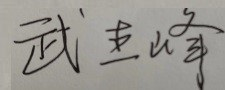 武志峰